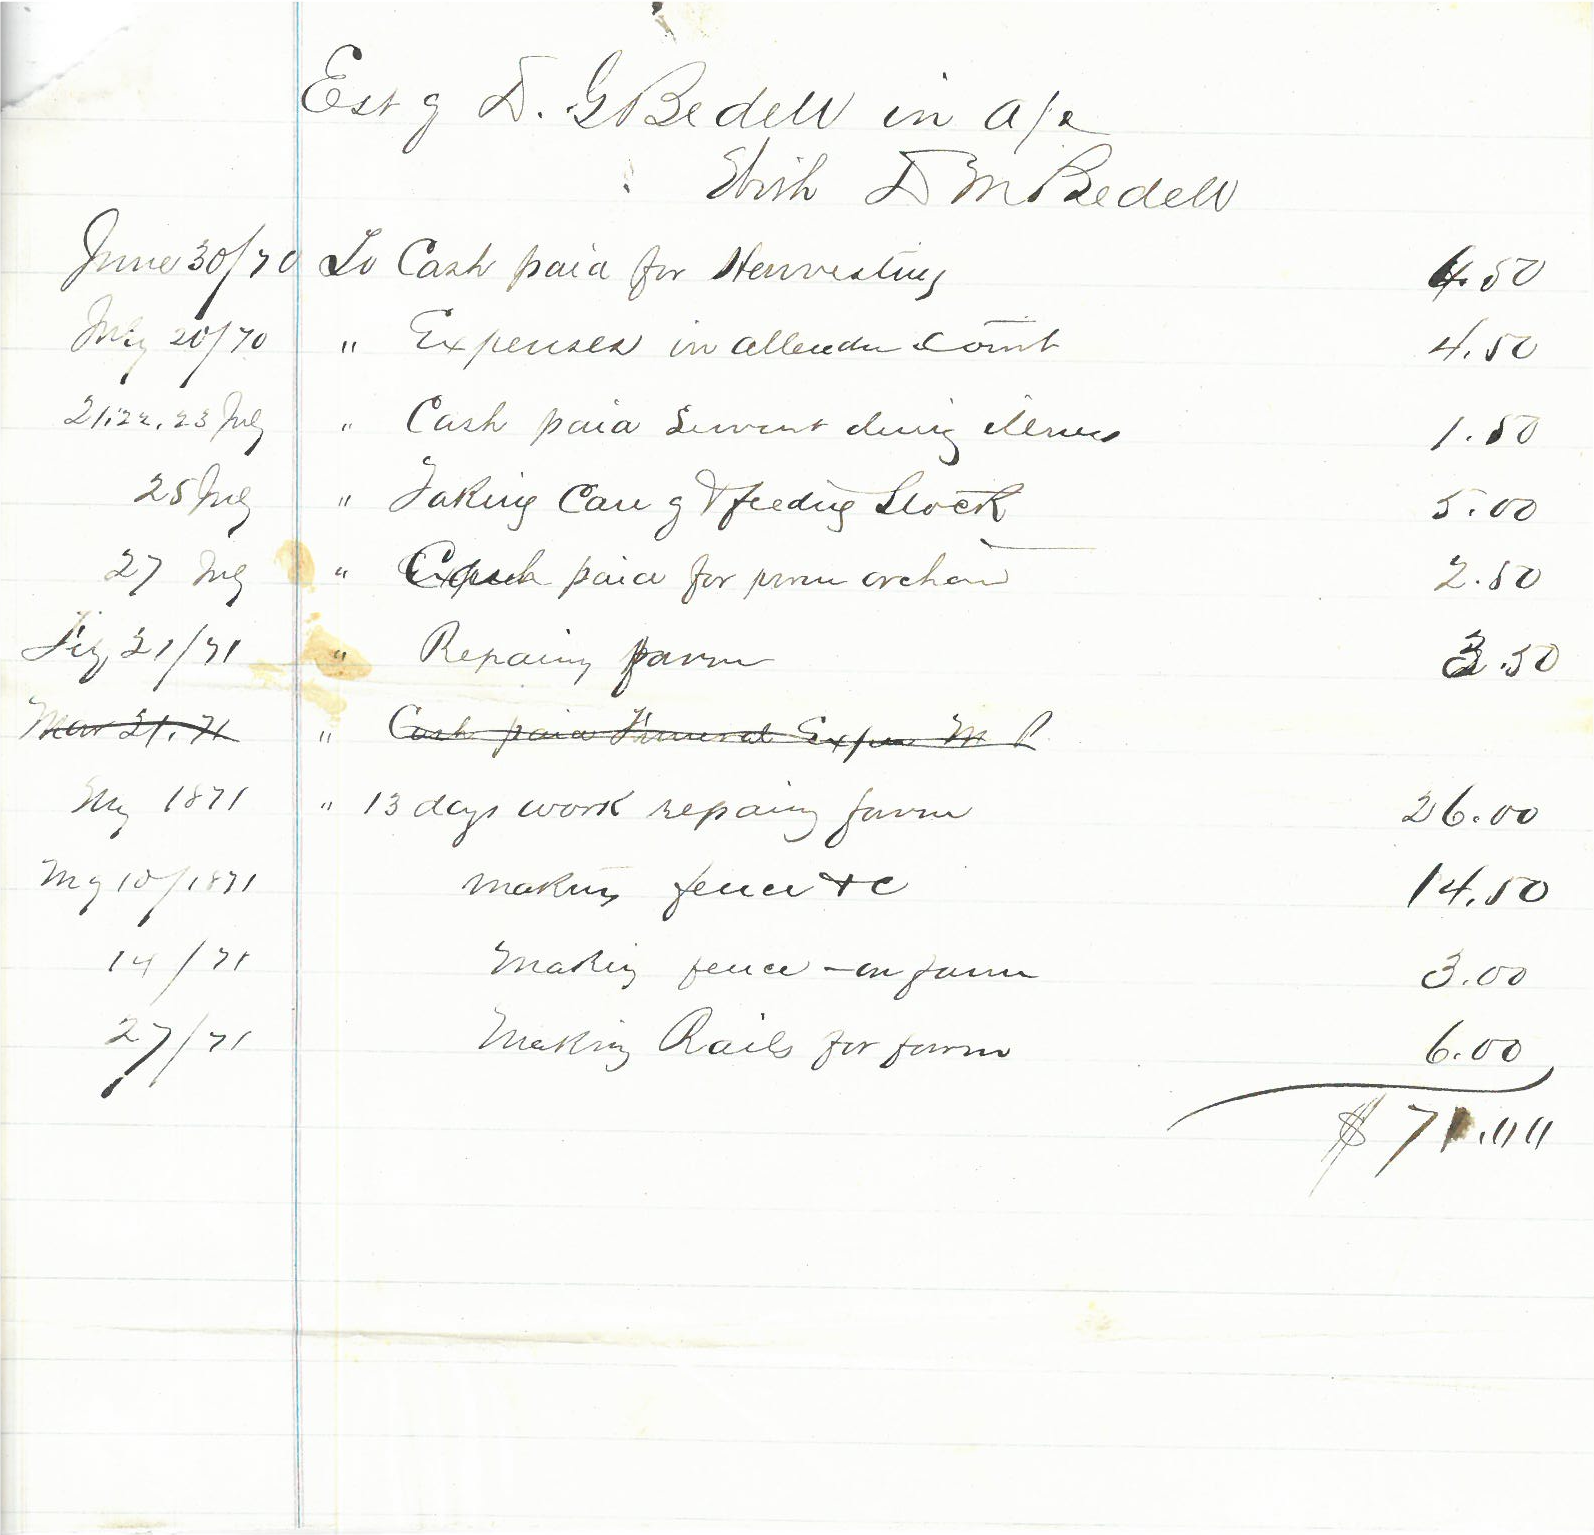 Est of D. G Bedell in a/c
With D M Bedell
June 30/70 To Cash paid for Harvesting 4.50
July 20/70 " Expenses in attendn Court 4.50
21, 22, 23 July " Cash paid Servant during illness 1.50
25 July " Taking Care of & feeding Stock 5.00
27 July " Cash paid for prun orchard 2.50
21/71 " Repairing farm 3.50
Mar 21. 71 " Cash paid Funeral Expen M
1871 " 13 days work repairing farm 26.00
My 10/1871 making fence & C 14.50
14/71 Making fence on farm 3.00
27/71 Making Rails for farm 6.00
$ 71.00